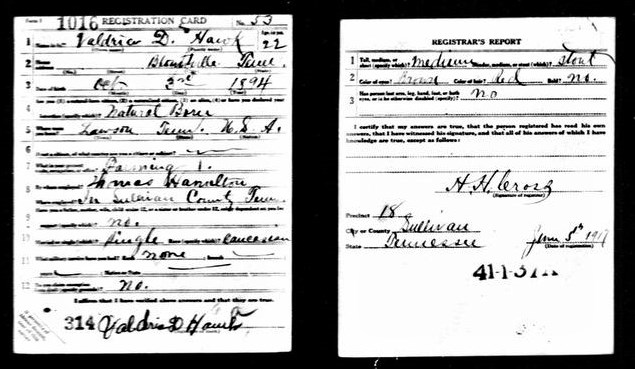 Form 1 1016 REGISTRATION CARD No. 53
1 Name in full Valdrie D. Hawk Age, in yrs. 22
2 Home address Blountville Tenn.
3 Date of birth Oct. 3rd 1894
4 Are you (1) a natural-born citizen, (2) a naturalized citizen, (3) an alien, (4) or have you declared your intention (specify which)? Natural Born
5 Where were you born? Lawson Tenn. U. S. A.
6 If not a citizen, of what country are you a citizen or subject?
7 What is your present trade, occupation, or office? Farming 1.
8 By whom employed? Thomas Hamelton
Where employed? In Sullivan County Tenn.
9 Have you a father, mother, wife, child under 12, or a sister or brother under 12, solely dependent on you for support (specify which)? no.
10 Married or single (which)? Single Race (specify which)? Caucasian
11 What military service have you had? Rank none ; branch
years ; Nation or State
12 Do you claim exemption from draft (specify grounds)? no.
I affirm that I have verified above answers and that they are true.
314 Valdrie D Hawk
REGISTRAR'S REPORT
1 Tall, medium, or short (specify which)? medium Slender, medium, or stout (which)? stout
2 Color of eyes? Brown Color of hair? Red Bald? no.
3 Has person lost arm, leg, hand, foot, or both eyes, or is he otherwise disabled (specify)? no
I certify that my answers are true, that the person registered has read his own answers, that I have witnessed his signature, and that all of his answers of which I have knowledge are true, except as follows:
H. H. Cross
(Signature of registrar)
Precinct 18
City or County Sullivan
State Tennessee June 5th 1917
(Date of registration)
41-1-37 A